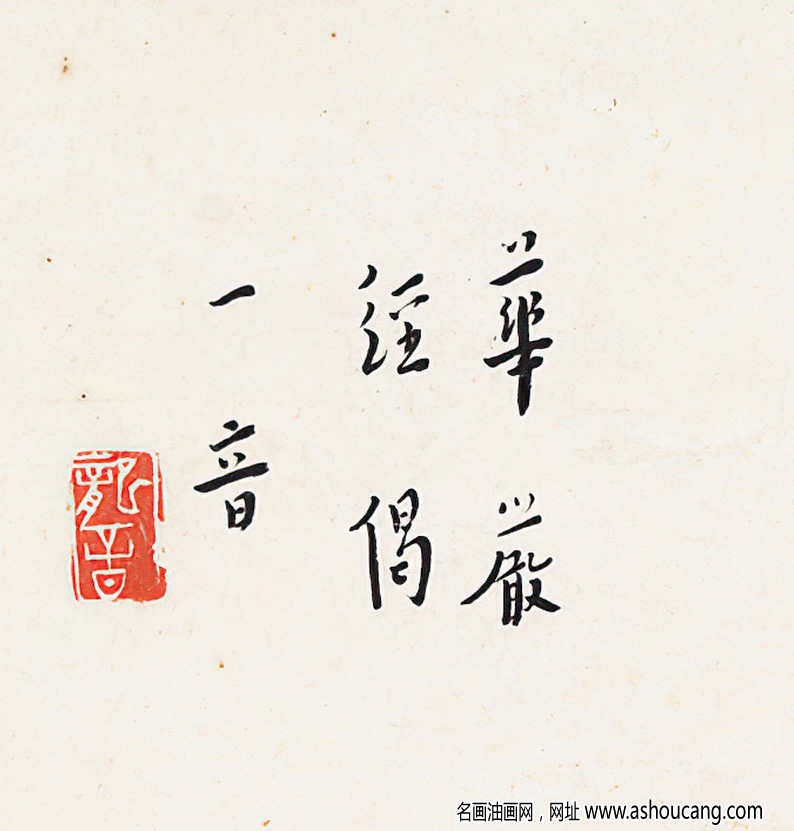 華嚴
經偈
一音
龍音
名画油画网，网址 www.ashoucang.com